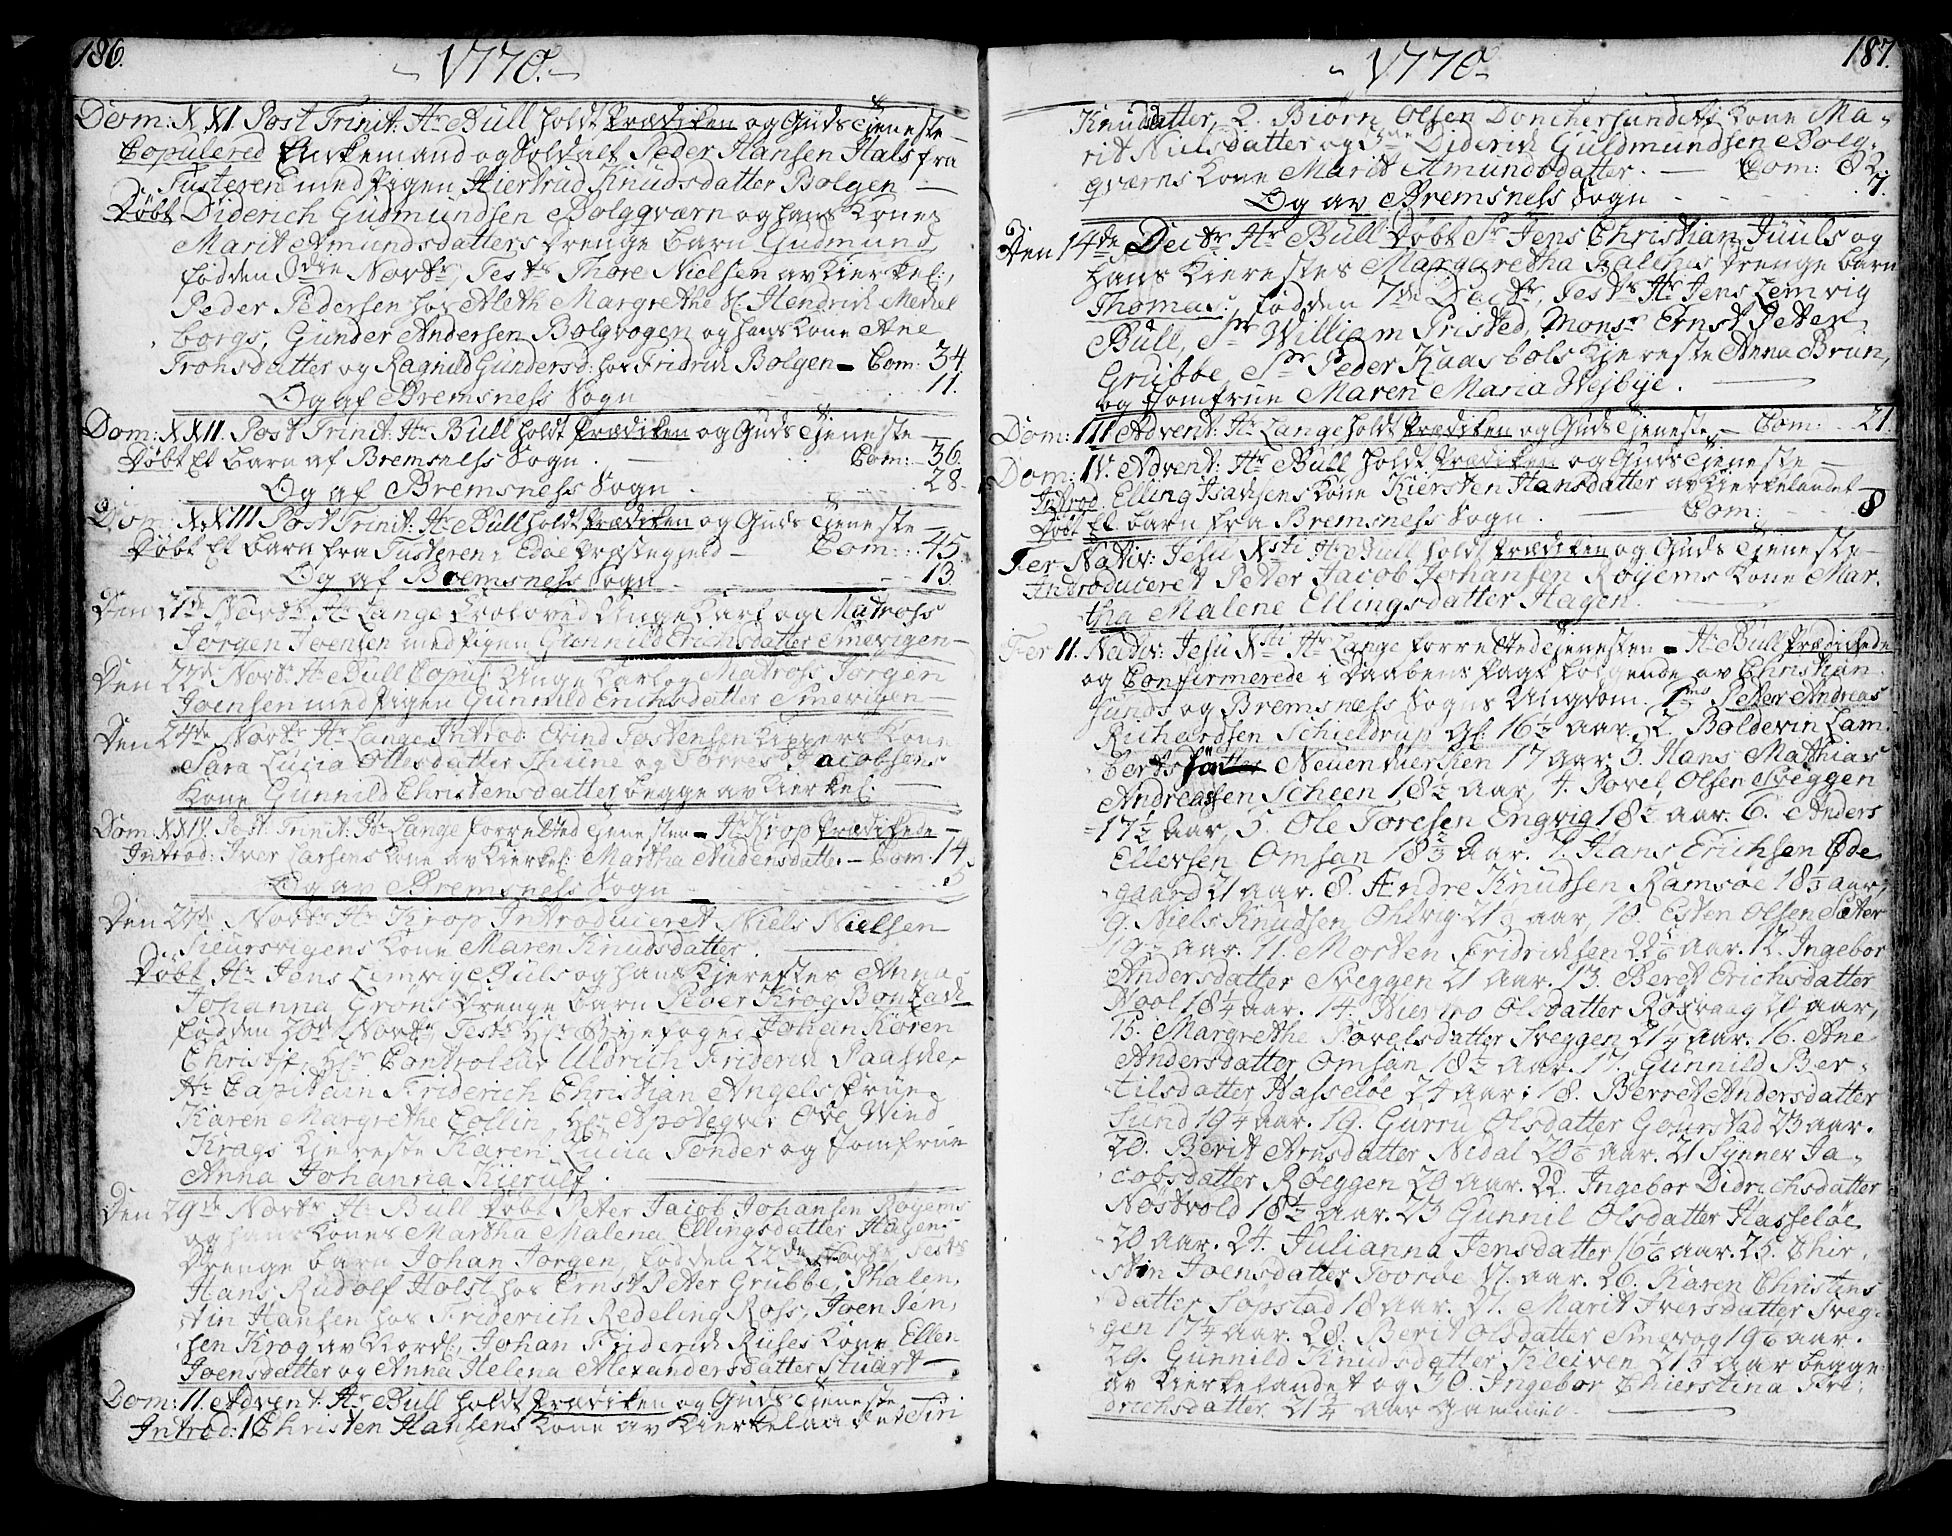 186.
~ 1770. ~
Dom: XXI. Post Trinit: Hr Bull holdt Prædiken og Guds Tieneste
Copulered Enkemand og Soldat Peder Hansen Hals fra
Tusteren med Pigen Hiertrud Knudsdatter Bolgen —
Døbt Diderich Gudmundsen Bolgqværn og hans Kones
Marit Amundsdatters Drenge Barn Gudmund,
født den 8de Novbr, Test: Thore Nielsen av Kierkel:,
Peder Pedersen hos Aleth Margrethe Sl. Hendrich Meckel
borgs, Gunder Andersen Bolgvogen og hans Kone Ane
Tronsdatter og Ragnild Gundersd: hos Fridrich Bolgen — Com: 34
Og af Bremsness Sogn 11.
Dom: XXII. Post Trinit: Hr Bull holdt Prædiken og Guds Tjeneste
Døbt Et Barn af Bremsness Sogn. Com: 36
Og af Bremsness Sogn 28
Dom: XXIII Post Trinit: Hr Bull holdt Prædiken og Guds Tjeneste
Døbt Et Barn fra Tusteren i Edøe Præstegjeld — Com: 45.
Og af Bremsness Sogn 13
Den 21de Novbr Hr Lange Troloved Unge Karl og Matross
Jørgen Joensen med Pigen Gunnild Erichsdatter Smevigen —
Den 22de Novbr Hr Bull Copul: Unge Karl og Matross Jørgen
Joensen med Pigen Gunnild Erichsdatter Smevigen —
Den 24de Novbr Hr Lange Introd: Evind Tostensen Kippers Kone
Sara Lucia Ottesdatter Thune og Torres Jacobsens
Kone Gunnild Christensdatter begge av Kierkel: —
Dom: XXIV. Post Trinit: Hr Lange forretted Tjenesten — Hr Krop Prædikede —
Introd: Iver Larsens Kone av Kierkel: Martha Audensdatt: — Com: 14.
Og av Bremsness Sogn 5
Den 27de Novbr Hr Krop Introduceret Niels Nielsen
Kone Maren Knudsdatter.
Døbt Hr Jens Lemvige Buls og hans Kjerestes Anna
Johanna Grøns Drenge Barn Peder Krog Bontsach
født den 20de Novbr Test: Hr Byefoged Johan Koren
Christie, Hr Controleur Uldrich Friderich Paasche,
Hr Capitain Friderich Christian Angels Frue
Karen Margrethe Collin, Hr Apoteqver Ove Wind
Krags Kjereste Karen Lucia Tønder og Jomfrue
Anna Johanna Kierulf.
Den 29de Novbr Hr Bull Døbt Peter Jacob Johansen Røyems
og hans Kones Martha Malena Ellingsdatter Hagens
Drenge Barn Johan Jørgen, født den 22de Novbr Test:
Hans Rudolf Holst hos Ernst Peter Grubbe, Phalen,
tin Hansen hos Friderich Redeling Ross, Joen Jen,
sen Krog av Nordl:, Johan Friderich Ruses Kone Ellen
Joensdatter og Anna Helena Alexandersdatter Stuart —
Dom: 11. Advent: Hr Bull holdt Prædiken og Guds Tjeneste
Introd: 1 Christen Hansens Kone av Kierkelandet Siri
187.
~ 1770 ~
Knudsdatter, 2. Biørn Olsen Donchersundets Kone Ma-
rit Nielsdatter og 3. Diderich Guldmundsen Bolg-
qværns Kone Marit Amundsdatter. — Com: 82
Og av Bremsness Sogn 7.
Den 14de Decbr Hr Bull Døbt Sr Jens Christian Juuls og
hans Kierestes Margaretha Kalches Drenge Barn
Thomas, født den 7de Decbr, Test: Hr Jens Lemvig
Bull, Sr William Pristed, Monsr Ernst Peter
Grubbe, Sr Peder Kaasbøls Kjereste Anna Brun,
og Jomfrue Maren Maria Wejbye.
Dom: III Advent: Hr Lange holdt Prædiken og Guds Tjeneste — Com: 21.
Dom: IV. Advent: Hr Bull holdt Prædiken og Guds Tjeneste —
Introd: Elling Isachsens Kone Kiersten Hansdatter av Kierkelandet
Døbt Et Barn fra Bremsness Sogn. Com: 8
Fer Nativ: Jesu Xsti Hr Bull holdt Prædiken og Guds Tjeneste —
Introduceret Peter Jacob Johansen Røyems Kone Mar-
tha Malene Ellingsdatter Hagen.
Fer 11. Nativ: Jesu Xsti Hr Lange forretted Tjenesten — Hr Bull Prædikede
og Confirmerede i Daabens Pagt følgende av Christian-
sunds og Bremsness Sogns Ungdom. 1mo Peter Andreas
Richardsen Schieldrup gl: 16½ aar, 2. Boldevin Lam-
berts Søn Neuenkierken 17 aar, 3. Hans Mathias
Andreassen Scheen 18½ aar, 4. Povel Olsen Sveggen
17½ aar, 5. Ole Toresen Engvig 18½ aar. 6. Anders
Ellefsen Omsan 18½ aar. 7. Hans Erichsen Øde
gaard 21 aar. 8. Andre Knudsen Ramsøe 18½ aar,
9. Niels Knudsen Ohlvig 21½ aar, 10. Esten Olsen Sæter
19½ aar. 11. Morten Fridrichsen 22 aar. 12. Ingebor
Andersdatter Sveggen 21 aar. 13. Beret Erichsdatter
Vool 18¼ aar. 14. Olsdatter Røsvaag 20 aar,
15. Margrethe Povelsdatter Sveggen 21¼ aar. 16. Ane
Andersdatter Omsan 18½ aar. 17. Gunnild Ber-
tilsdatter Hasseløe 24 aar; 18. Berret Andersdatter
Sund 19¼ aar. 19. Gurru Olsdatter Gourstad 23 aar.
20. Berit Arnsdatter Nedal 20 aar. 21 Synner Ja-
cobsdatter Røeggen 20 aar. 22. Ingebor Didrichsdatter
Nøstvold 18½ aar. 23 Gunnil Olsdatter Hasseløe
20 aar. 24. Julianna Jensdatter 16 aar. 25. Chir-
stin Joensdatter 17. aar. 26. Karen Christens
datter Sopstad 18 aar. 27. Marit Iversdatter Sveg-
gen 17¼ aar. 28. Berit Olsdatter Smevog 19 aar.
29. Gunnild Knudsdatter Kleiven 21½ aar begge
av Kierkelandet og 30. Ingebor Chierstina Fri-
drichsdatter 21¼ aar gammel.